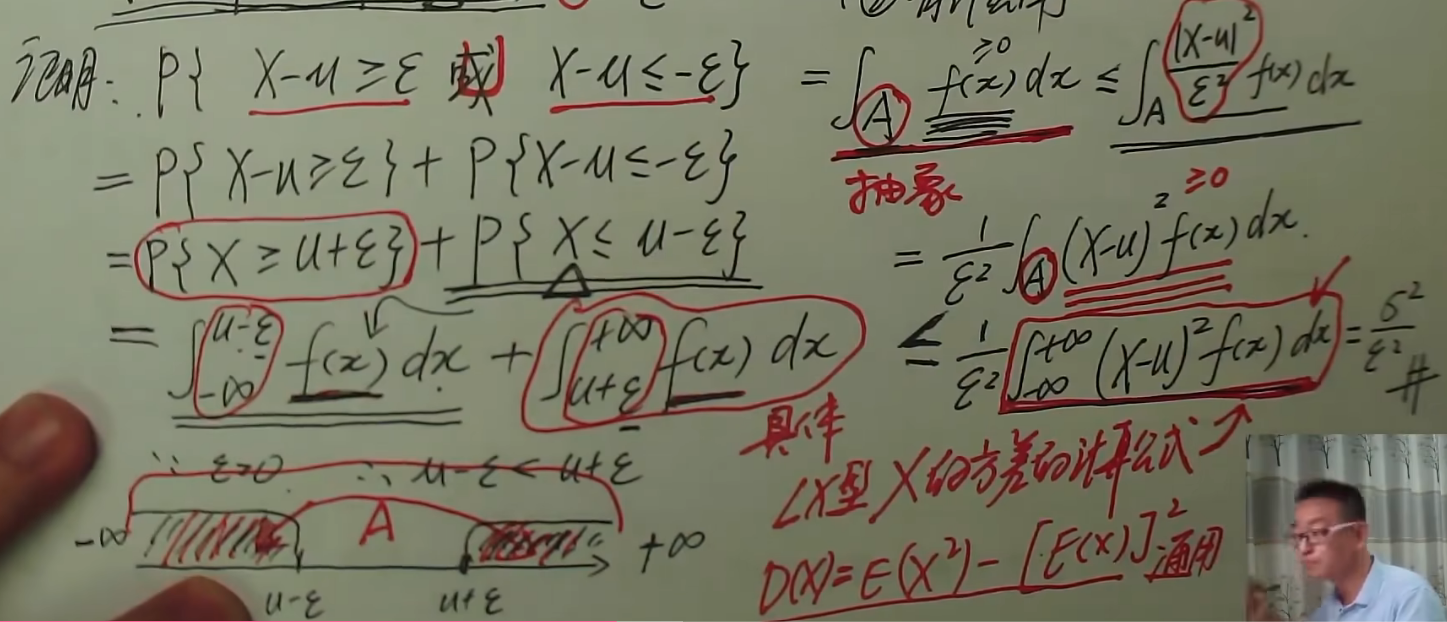 证明: P{ X-u≥ε 或 X-u≤-ε}
= P{ X-u≥ε} + P{X-u≤-ε}
= P{X ≥ u+ε} + P{X ≤ u-ε}
= ∫_{-∞}^{u-ε} f(x) dx + ∫_{u+ε}^{+∞} f(x) dx
具体
∵ ε>0 ∴ u-ε < u+ε
A
-∞ +∞
u-ε u+ε
≥0
= ∫_A f(x) dx ≤ ∫_A |X-u|²/ε² f(x) dx
抽象
≥0
= 1/ε² ∫_A (X-u)² f(x) dx.
≤ 1/ε² ∫_{-∞}^{+∞} (X-u)² f(x) dx = σ²/ε² #
LX型 X的方差的计算公式
D(X)=E(X²)-[E(X)]² 通用